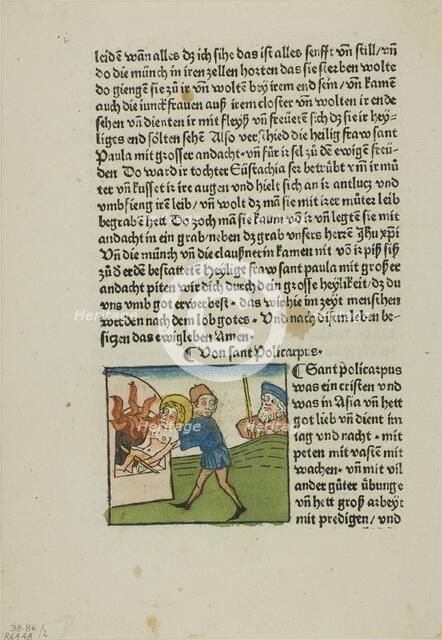 leidē wañ alles dz ich sihe das ist alles senfft vñ still/ vñ
do die münch in iren zellen horten das sie sterben wolte
do giengē sie zů ir vñ woltē bey irem end sein/ vñ kamē
auch die iunckfrauen auß irem closter vñ wolten ir ende
sehen vñ dienten ir mit fleyß vñ freuetē sich dz sie ir hey-
liges end sölten sehē Also verschied die heilig fraw sant
Paula mit grosser andacht vñ fůr ir sel zů dē ewigē freü-
den Do ward ir tochter Eustachia ser betrübt vm̄ ir mů
ter vñ kusset ir ire augen vñ hielt sich an ir antlucz vnd
vmbfieng irē leib/ vñ wolt dz mā sie mit irer můter leib
begrabē hett Do zoch mā sie kaum vō ir vñ legtē sie mit
andacht in ein grab/ neben dz grab vnsers herrē Jhu xp̄i
Vñ die münch vñ die claußnerin kamen mit vō ir piß sich
zů d erdē bestattetē Heylige fraw sant paula mit groß er
andacht piten wir dich durch dein grosse heylikeit/ dz du
vns vmb got erwerbest· das wir hie im zeyt menschen
werden nach dem lob gotes· Vnd nach disem leben be-
sigen das ewigleben Amen·
¶ Von sant Policarpus·
¶ Sant Policarpus
was ein cristen vnd
was in Asia vñ hett
got lieb vñ dient im
tag vnd nacht· mit
peten mit vastē mit
wachen· vñ mit vil
ander gůter übunge
vñ hett groß arbeyt
mit predigen/ vnd
Heritage
Heritage
Heritage
Heritage
38-86/2
R6448